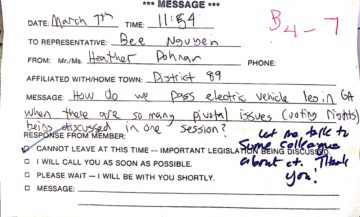 *** MESSAGE ***
DATE: March 7th TIME: 11:54
B4-7
TO REPRESENTATIVE: Bee Nguyen
FROM: Mr./Ms. Heather Pohnan PHONE:
AFFILIATED WITH/HOME TOWN: District 89
MESSAGE: How do we pass electric vehicle leg in GA
when there are so many pivotal issues (voting rights)
being discussed in one session?
RESPONSE FROM MEMBER:
CANNOT LEAVE AT THIS TIME — IMPORTANT LEGISLATION BEING DISCUSSED
I WILL CALL YOU AS SOON AS POSSIBLE.
PLEASE WAIT — I WILL BE WITH YOU SHORTLY.
MESSAGE:
Let me talk to
some colleagues
about it. Thank
you!